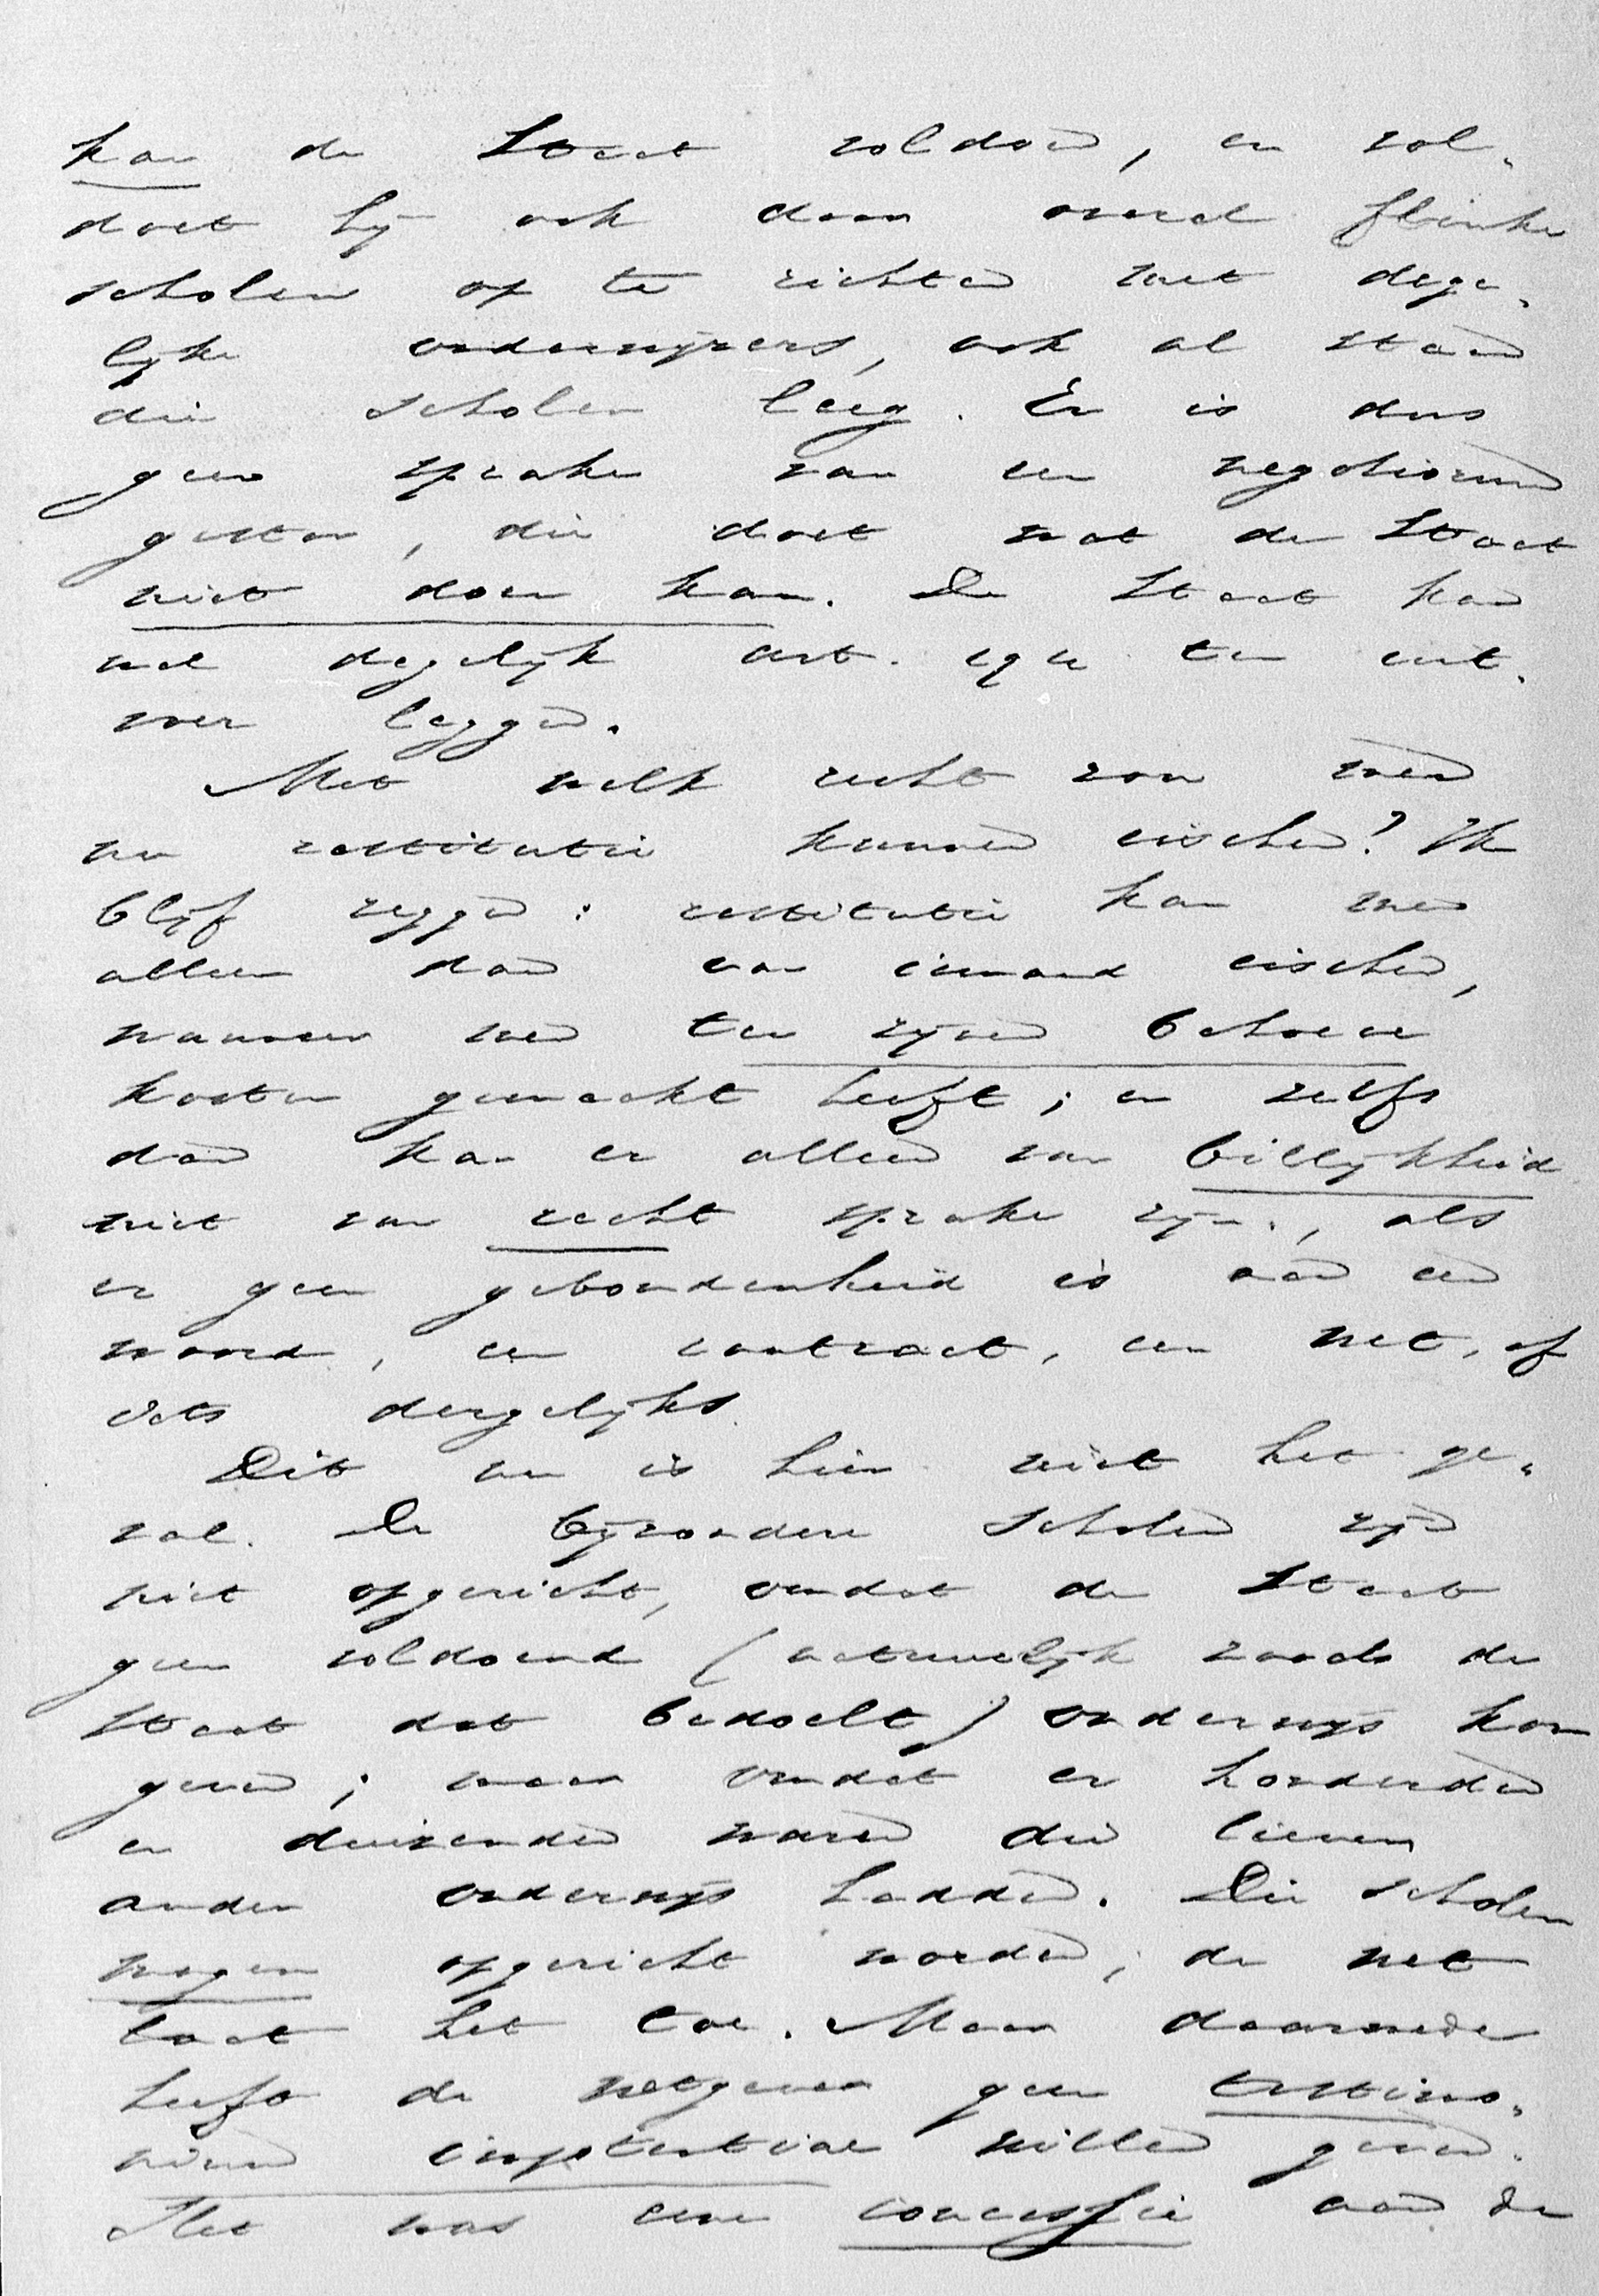 kan de Staat voldoen, en vol-
doet hij ook door overal flinke
scholen op te richten met dege-
lijke onderwijzers, ook al staan
die scholen leeg. Er is dus
geen sprake van een negotiorum
gestor, die doet wat de Staat
niet doen kan. De Staat kan
wel degelijk art. 194 ten uit-
voer leggen.
Met welk recht zou men
nu restitutie kunnen eischen? Ik
blijf zeggen: restitutie kan men
alleen dan van iemand eischen,
wanneer men ten zijnen behoeve
kosten gemaakt heeft; en zelfs
dan kan er alleen van billijkheid
niet van recht sprake zijn, als
er geen gebondenheid is aan een
woord, een contract, een wet, of
iets dergelijks.
Dit nu is hier niet het ge-
val. De bijzondere scholen zijn
niet opgericht, omdat de Staat
geen voldoend (natuurlijk zooals de
Staat dat bedoelt) onderwijs kan
geven; maar omdat er honderden
en duizenden waren die liever
ander onderwijs hadden. Die scholen
mogen opgericht worden; de wet
laat het toe. Maar daarmede
heeft de wetgever geen testimo-
nium impotentiae willen geven.
Het was eene concessie aan de